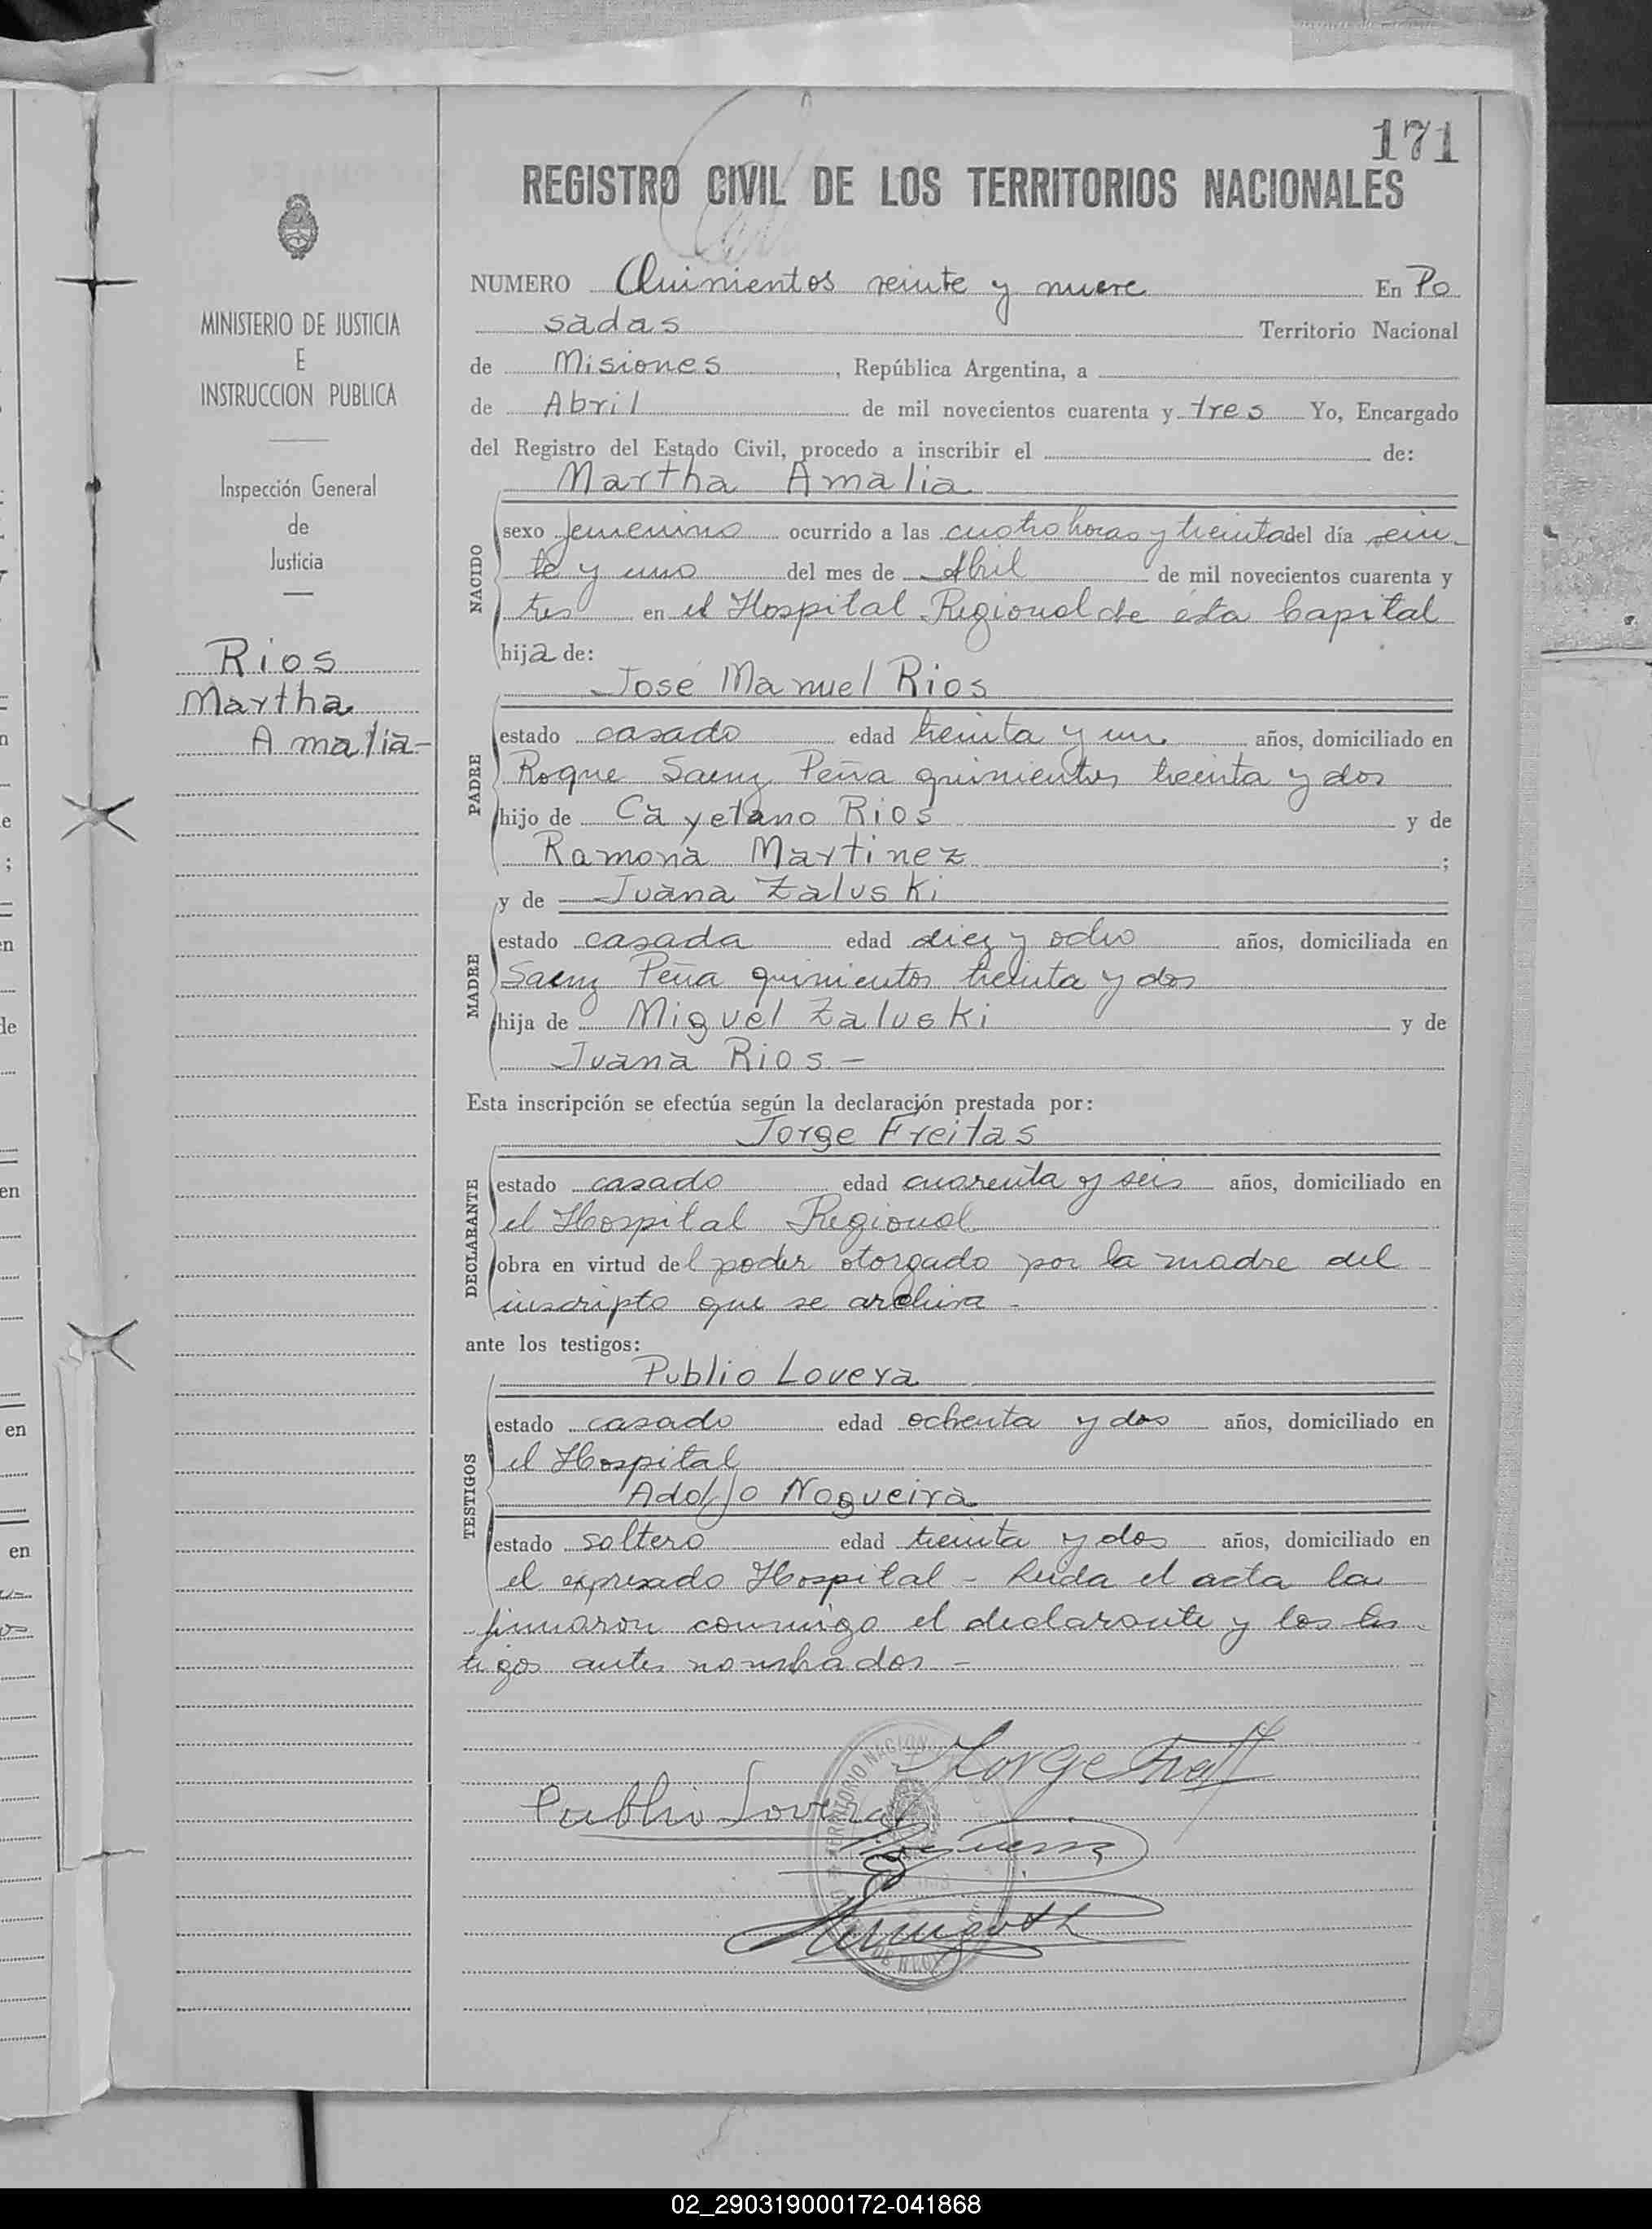 171
REGISTRO CIVIL DE LOS TERRITORIOS NACIONALES
MINISTERIO DE JUSTICIA
E
INSTRUCCION PUBLICA
Inspección General
de
Justicia
Rios
Martha
Amalia-
NUMERO Quinientos veinte y nueve En Po
sadas Territorio Nacional
de Misiones, República Argentina, a
de Abril de mil novecientos cuarenta y tres Yo, Encargado
del Registro del Estado Civil, procedo a inscribir el de:
Martha Amalia
NACIDO
sexo femenino ocurrido a las cuatro horas y treinta del día vein-
te y uno del mes de Abril de mil novecientos cuarenta y
tres en el Hospital Regional de ésta Capital
hija de:
José Manuel Rios
PADRE
estado casado edad treinta y un años, domiciliado en
Roque Saenz Peña quinientos treinta y dos
hijo de Cayetano Rios y de
Ramona Martinez ;
y de Juana Zaluski
MADRE
estado casada edad diez y ocho años, domiciliada en
Saenz Peña quinientos treinta y dos
hija de Miguel Zaluski y de
Juana Rios -
Esta inscripción se efectúa según la declaración prestada por:
Jorge Freitas
DECLARANTE
estado casado edad cuarenta y seis años, domiciliado en
el Hospital Regional
obra en virtud del poder otorgado por la madre del
inscripto que se archiva -
ante los testigos:
Publio Lovera
TESTIGOS
estado casado edad ochenta y dos años, domiciliado en
el Hospital
Adolfo Nogueira
estado soltero edad treinta y dos años, domiciliado en
el expresado Hospital - Leida el acta la
firmaron conmigo el declarante y los tes
tigos antes nombrados -
Jorge
Publio Lovera
TERRITORIO NACION
02_290319000172-041868